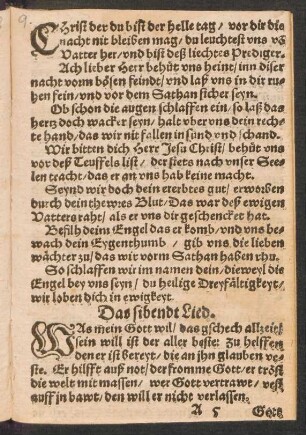 CHrist der du bist der helle tag / vor dir die
nacht nit bleiben mag / du leuchtest vns võ
Vatter her / vnd bist deß liechtes Prediger.
Ach lieber Herr behüt vns heint / inn diser
nacht vorm bösen feindt / vnd laß vns in dir ru-
hen fein / vnd vor dem Sathan sicher seyn.
Ob schon die augen schlaffen ein / so laß das
hertz doch wacker seyn / halt vber vns dein rech-
te hand / das wir nit fallen in sünd vnd schand.
Wir bitten dich Herr Jesu Christ / behüt vns
vor deß Teuffels list / der stets nach vnser See-
len tracht / das er an vns hab keine macht.
Seynd wir doch dein ererbtes gut / erworben
durch dein thewres Blut / Das war deß ewigen
Vatters raht / als er vns dir geschencket hat.
Befilh deim Engel das er komb / vnd vns be-
wach dein Eygenthumb / gib vns die lieben
wächter zu / das wir vorm Sathan haben rhu.
So schlaffen wir im namen dein / dieweyl die
Engel bey vns seyn / du heilige Dreyfältigkeyt /
wir loben dich in ewigkeyt.
Das sibendt Lied.
WAs mein Gott wil / das gschech allzeit /
sein will ist der aller beste: Zu helffen
den er ist bereyt / die an jhn glauben ve-
ste. Er hilfft auß not / der fromme Gott / er tröst
die welt mit massen / wer Gott vertrawt / vest
auff in bawt / den will er nicht verlassen.
A 5 Gott